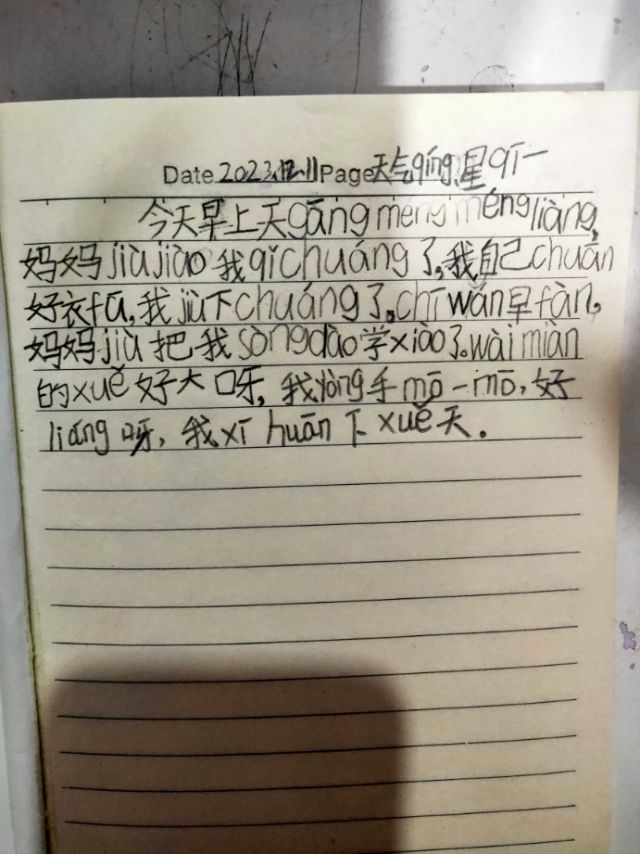 Date 2023.12.11 Page 天气qíng 星qī一
今天早上天gāng méng méng liàng,
妈妈jiù jiào我qǐchuáng了,我自己chuān
好衣fú,我jiù下chuáng了,chī wán早fàn,
妈妈jiù把我sòngdào学xiào了。wài miàn
的xuě好大呀,我yòng手mō一mō,好
liáng呀,我xǐ huān下xuě天.